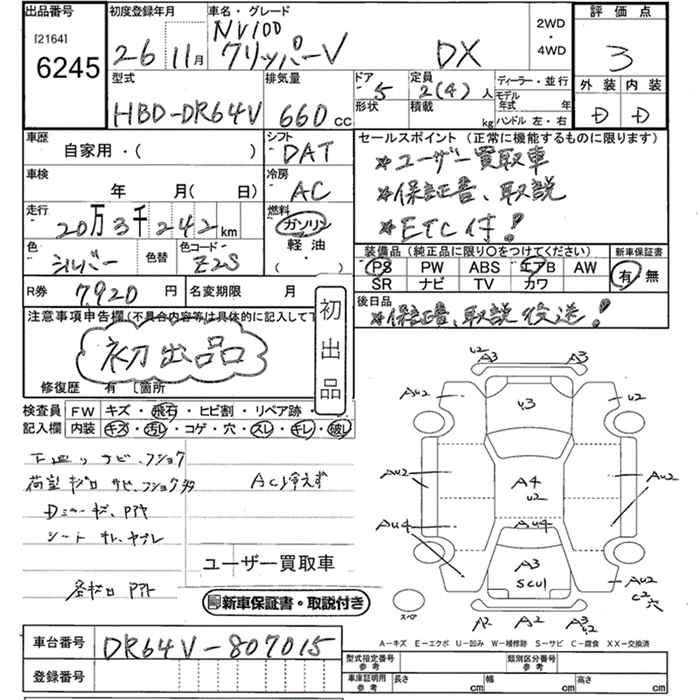 出品番号
[2164]
6245
初度登録年月
26 11月
車名・グレード
NV100
クリッパーV DX
2WD
・
4WD
評価点
3
外装 内装
D D
型式
HBD-DR64V
排気量
660 cc
ドア
5
形状
定員
2(4)人
積載
kg
ディーラー・並行
モデル
年式 年
ハンドル 左・右
車歴
自家用・( )
シフト
DAT
セールスポイント (正常に機能するものに限ります)
*ユーザー買取車
*保証書、取説
*ETC付!
車検
年 月( 日)
冷房
AC
走行
20万3千242km
燃料
ガソリン
軽油
・( )
色
シルバー
色替
色コード
Z2S
装備品 (純正品に限り〇をつけてください)
PS PW ABS エアB AW
SR ナビ TV カワ
新車保証書
有 無
R券
7,920 円
名変期限 月
後日品
*保証書、取説後送!
注意事項申告欄(不具合内容等は具体的に記入して下
初出品
初出品
修復歴 有 [箇所
検査員
記入欄
FW キズ・飛石・ヒビ割・リペア跡・
内装 キズ・汚レ・コゲ・穴・スレ・キレ・破レ
下廻りサビ、フショク
ACリ冷えず
シートキレ、ヤブレ
ユーザー買取車
新車保証書・取説付き
U2 A3 A3
AU2 U3 U2
AU2 A4 U2 AU2
AU4 AU4
A3 SCU1
AU2
C2穴
スペア
A2 A2 A3
U2
A－キズ E－エクボ U－凹み W－補修跡 S－サビ C－腐食 XX－交換済
車台番号
DR64V-807015
登録番号
型式指定番号
参考
類別区分番号
参考
車庫証明用
参考
長さ cm 幅 cm 高さ cm